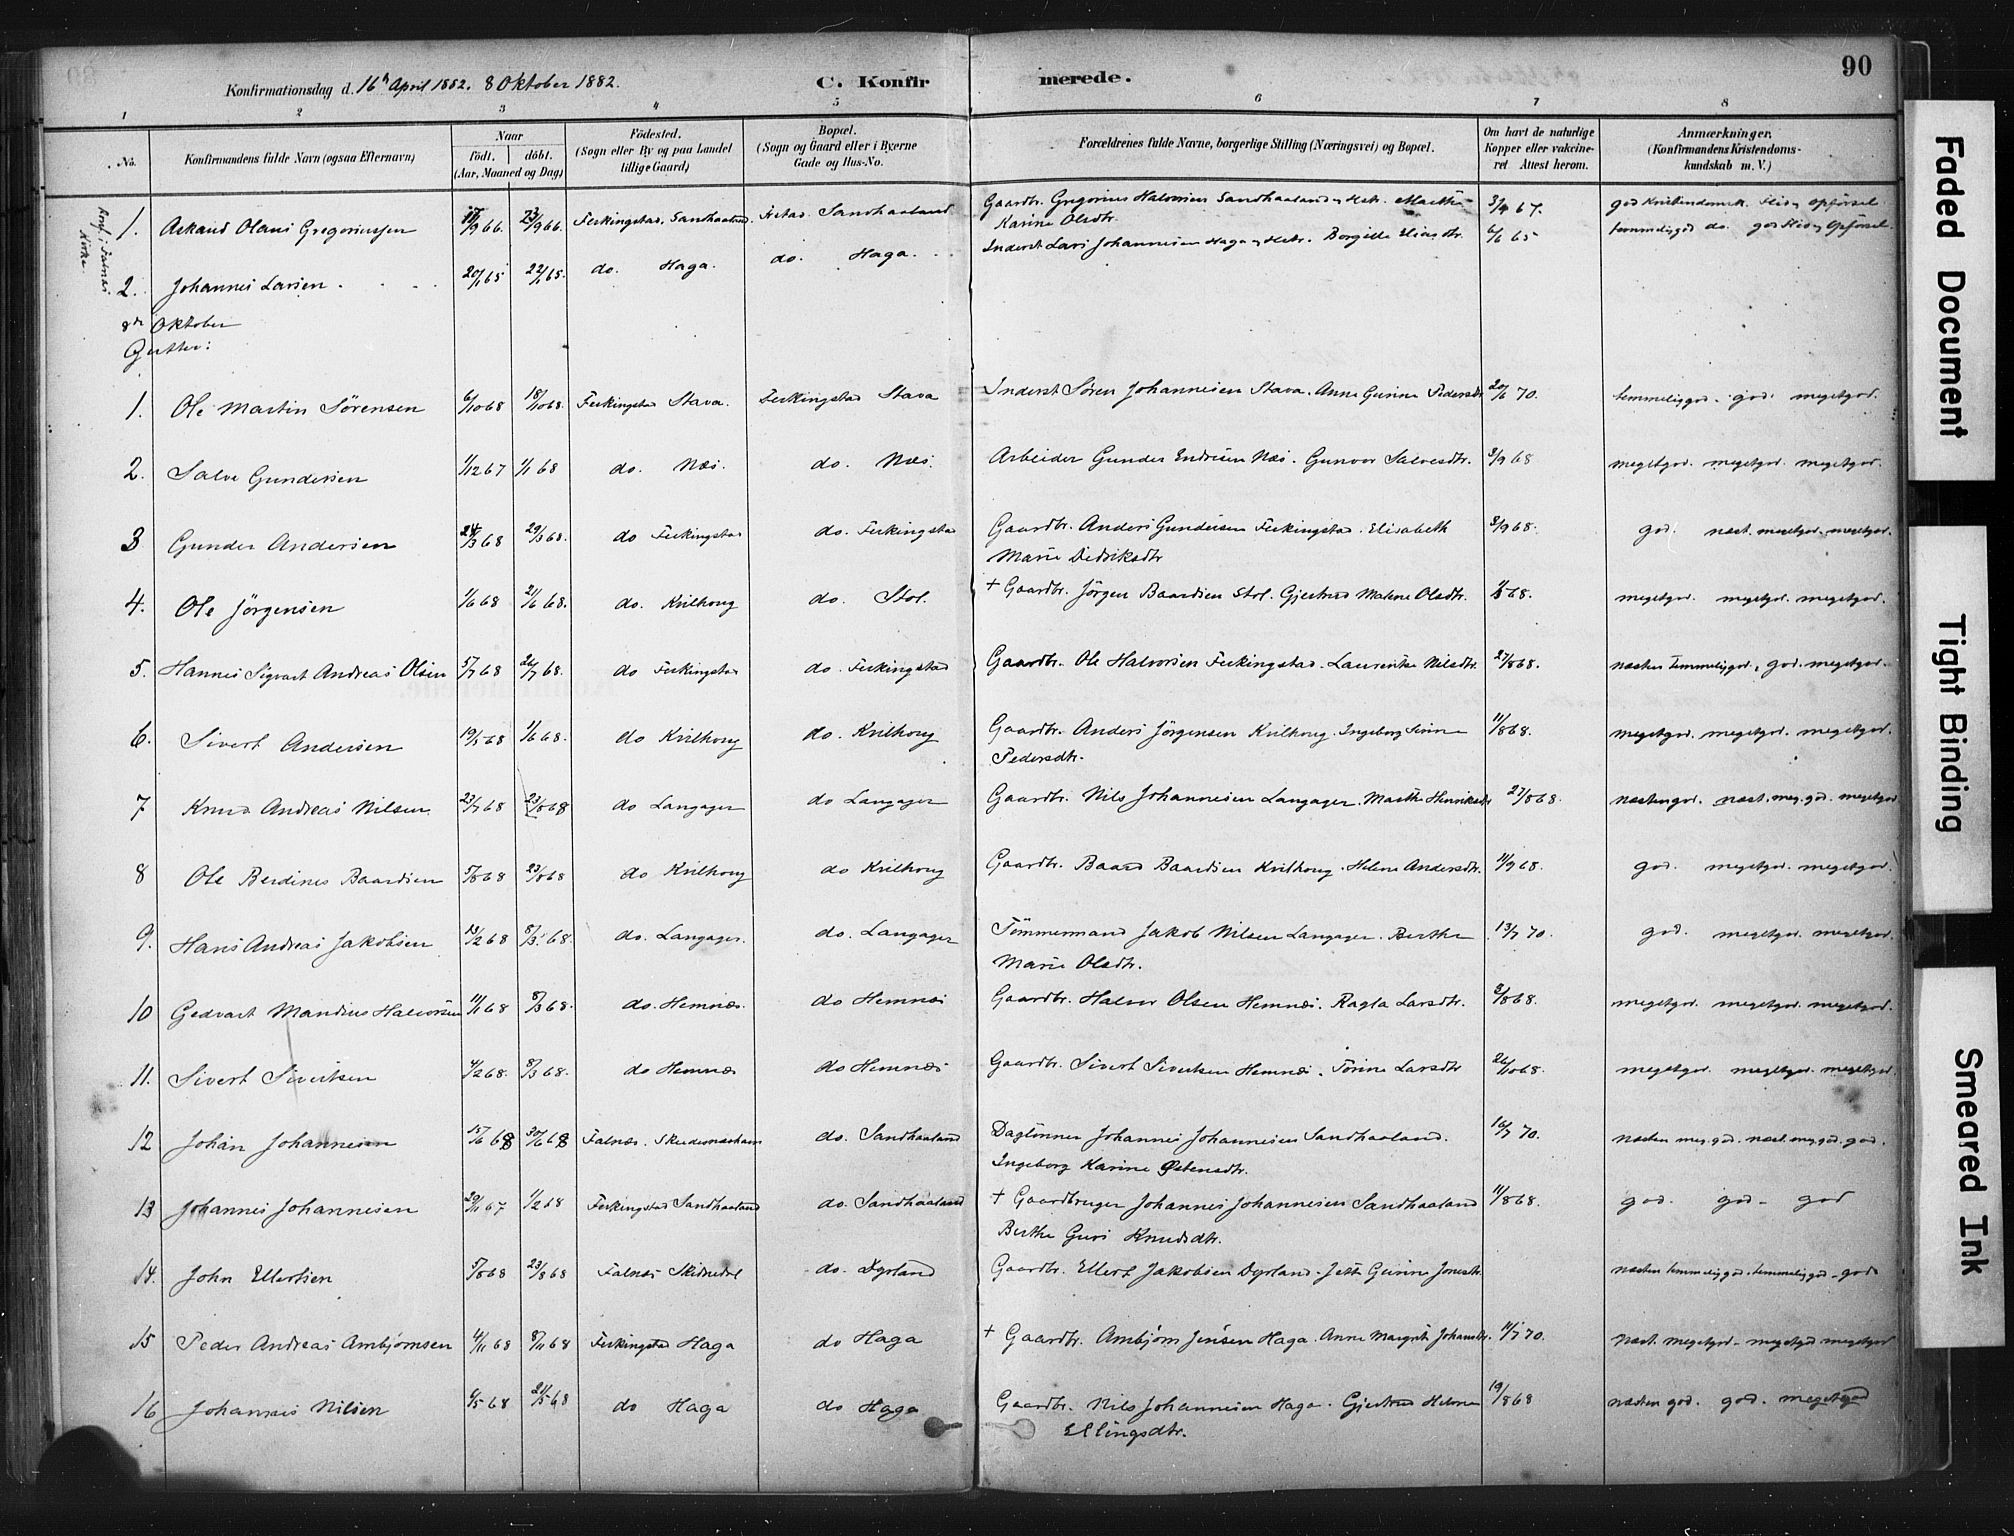 90
Konfirmationsdag d. 16de April 1882. 8 Oktober 1882. C. Konfirmerede.
1 2 3 4 5 6 7 8
No. Konfirmandens fulde Navn (ogsaa Efternavn) Naar født. døbt. (Aar, Maaned og Dag) Fødested. (Sogn eller By og paa Landet tillige Gaard) Bopæl. (Sogn og Gaard eller i Byerne Gade og Hus-No. Forældrenes fulde Navne, borgerlige Stilling (Næringsvei) og Bopæl. Om havt de naturlige Kopper eller vakcineret Attest herom. Anmærkninger. (Konfirmandens Kristendomskundskab m. V.)
Konf. i Falnæs Kirke
1. Askaud Olaus Gregoriussen /9 66. 23/9 66. Ferkingstad, Sandhaaland. Fstad Sandhaaland Gaardbr. Gregorius Halvorsen Sandhaaland og Hstr. Marthe Karine Olsdtr. 3/4 67. god Kristendomsk. Flid og Opførsel.
2. Johannes Larsen. 20/1 65 22/1 65. do. Haga. do. Haga. Inderst Lars Johannesen Haga og Hstr. Borgille Eliasdtr. 6/6 65 temmeliggod do. god Flid og Opførsel.
8de Oktober
Gutter:
1. Ole Martin Sørensen 6/10 68 18/10 68. Ferkingstad Stava. Ferkingstad Stava Inderst Søren Johannesen Stava. Anne Gurine Pedersdtr 20/6 70. temmeliggod. god. megetgod.
2. Salve Gundersen 1/12 67 1/1 68 do. Næs. do. Næs. Arbeider Gunder Endresen Næs. Gunvor Salvesdtr. 3/9 68 megetgod. megetgod. megetgod.
3 Gunder Andersen 24/3 68 29/3 68. do Ferkingstad do. Ferkingstad Gaardbr. Anders Gundersen Ferkingstad. Elisabeth Marie Didriksdtr 3/9 68. god. næst. megetgod. megetgod.
4. Ole Jörgensen 1/6 68 21/6 68. do. Kvilhoug do. Stol. + Gaardbr. Jörgen Baardsen Stol. Gjertrud Malene Olsdtr. 68. megetgod. megetgod. megetgod.
5. Hannes Sigvart Andreas Olsen 5/7 68 26/7 68. do Ferkingstad do. Ferkingstad Gaardbr. Ole Halvorsen Ferkingstad. Laurentze Nilsdtr. 27/8 68. næsten temmeliggod, god. megetgod.
6. Sivert Andersen 19/5 68 1/6 68. do Kvilhoug do. Kvilhoug Gaardbr. Anders Jörgensen Kvilhoug. Ingeborg Serine Pedersdtr. 11/8 68. megetgod. megetgod. megetgod.
7 Knud Andreas Nilsen 23/7 68 23/8 68 do Langager do Langager Gaardbr. Nils Johannesen Langager. Marthe Henriksdtr 27/8 68. næstengod. næst. meg. god. megetgod
8 Ole Berdines Baardsen 5/8 68 23/8 68 do Kvilhoug do Kvilhoug Gaardbr. Baard Baardsen Kvilhoug. Helene Andersdtr. 11/9 68. god. megetgod. megetgod.
9. Hans Andreas Jakobsen 13/2 68 8/3 68. do. Langager. do. Langager Tömmermand Jakob Nilsen Langager. Berthe Marie Olsdtr. 13/7 70. god. megetgod. megetgod.
10 Gedvart Mandius Halvorsen 11/1 68 8/3 68. do. Hemnæs. do Hemnæs Gaardbr. Halvor Olsen Hemnæs. Ragla Larsdtr. 3/8 68. megetgod. megetgod. megetgod.
11. Sivert Sivertsen 4/2 68. 8/3 68. do Hemnæs do Hemnæs Gaardbr. Sivert Sivertsen Hemnæs. Torine Larsdtr 26/10 68. megetgod. megetgod. megetgod.
12 Johan Johannesen 15/6 68 30/6 68 Falnæs. Skudesneshavn do. Sandhaaland Daglönner Johannes Johannesen Sandhaaland. Ingeborg Karine Østensdtr. 16/7 70. næsten meg. god. næst. meg. god. god.
13 Johannes Johannesen 29/11 67 1/2 68 Ferkingstad Sandhaaland do. Sandhaaland + Gaardbruger Johannes Johannesen Sandhaaland Berthe Guri Knudsdtr. 11/8 68. god. god. god
14. John Ellertsen 5/8 68 23/8 68 Falnæs Skidnedal do. Dyrland Gaardbr. Ellert Jakobsen Dyrland. Gurine Jonsdtr næsten temmeliggod. temmeliggod. god
15 Peder Andreas Ambjørnsen 4/11 68 8/11 68 Ferkingstad Haga do Haga + Gaardbr. Ambjørn Jensen Haga. Anne Margrete Johansdtr. 11/7 70. næst. megetgod. megetgod megetgod
16 Johannes Nilsen 6/5 68 21/5 68 do Haga do Haga Gaardbr. Nils Johannesen Haga. Gjertrud Helene Ellingsdtr. 19/8 68 næsten god. god. megetgod
Faded Document
Tight Binding
Smeared Ink